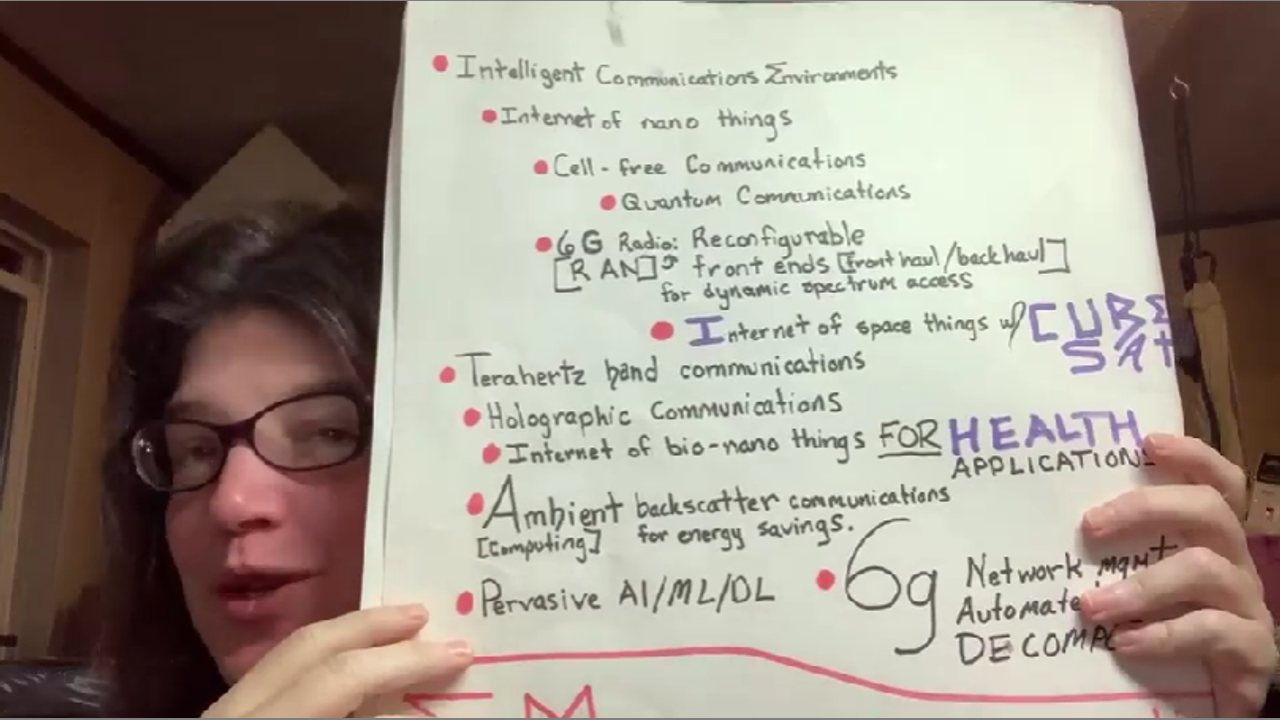 Intelligent Communications Environments
Internet of nano things
Cell-free Communications
Quantum Communications
6G Radio: Reconfigurable
[RAN] front ends [fronthaul/backhaul]
for dynamic spectrum access
Internet of space things w/ CUBE
SAT
Terahertz band communications
Holographic Communications
Internet of bio-nano things FOR HEALTH
APPLICATIONS
Ambient backscatter communications
[computing] for energy savings.
Pervasive AI/ML/DL
6g Network mgmt
Automate
DECOMP
M